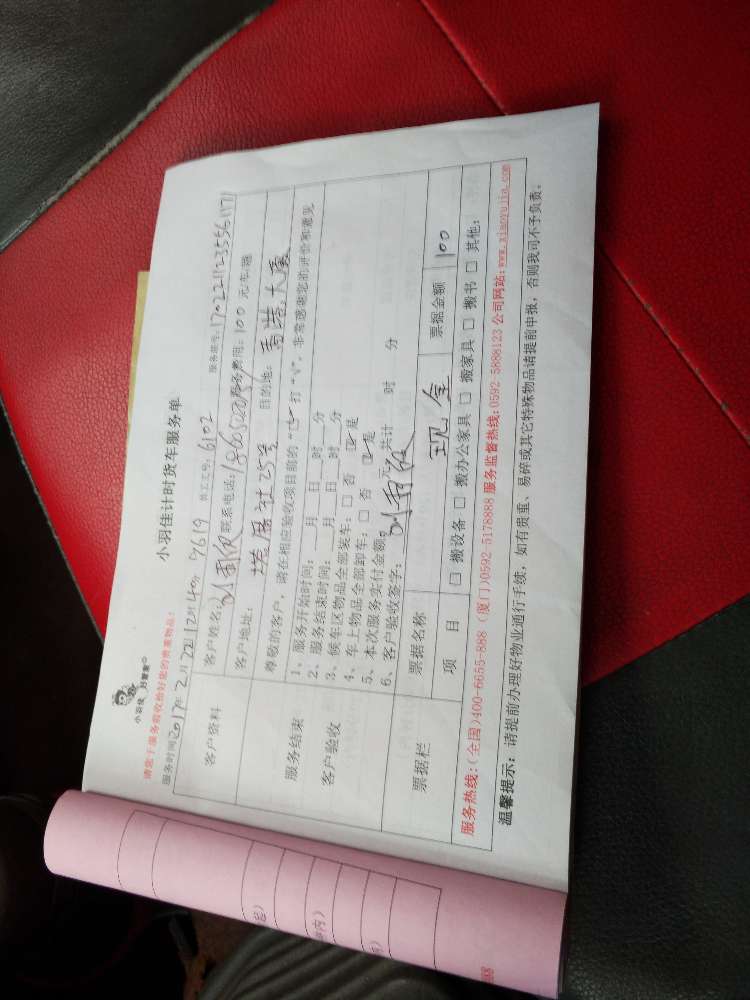 小羽佳 好管家
小羽佳计时货车服务单
请您于服务前收拾好您的贵重物品:
服务时间2017年2月22日12时40分 9619 员工工号:6102 服务账单:170221123556171
客户资料
客户姓名: 联系电话: 服务费用:100元车/趟
客户地址: 25号 目的地: 大厦
服务结束
客户验收
尊敬的客户,请在相应验收项目前的“□”打“√”,非常感谢您的评价和意见
1、服务开始时间: 月 日 时 分
2、服务结束时间: 月 日 时 分
3、候车区物品全部装车:□ 否 ☑是
4、车上物品全部卸车:□ 否 ☑是
5、本次服务实付金额 元,共计 时 分
6、客户验收签字:
票据栏
票据名称 现金 票据金额 100
项 目 □ 搬设备 □ 搬办公家具 □ 搬家具 □ 搬书 □ 其他:
服务热线:(全国)400-6655-888 (厦门)0592-5178888 服务监督热线:0592-5888123 公司网站:www.xiaoyujia.com
温馨提示:请提前办理好物业通行手续,如有贵重、易碎或其它特殊物品请提前申报,否则我司不予负责。